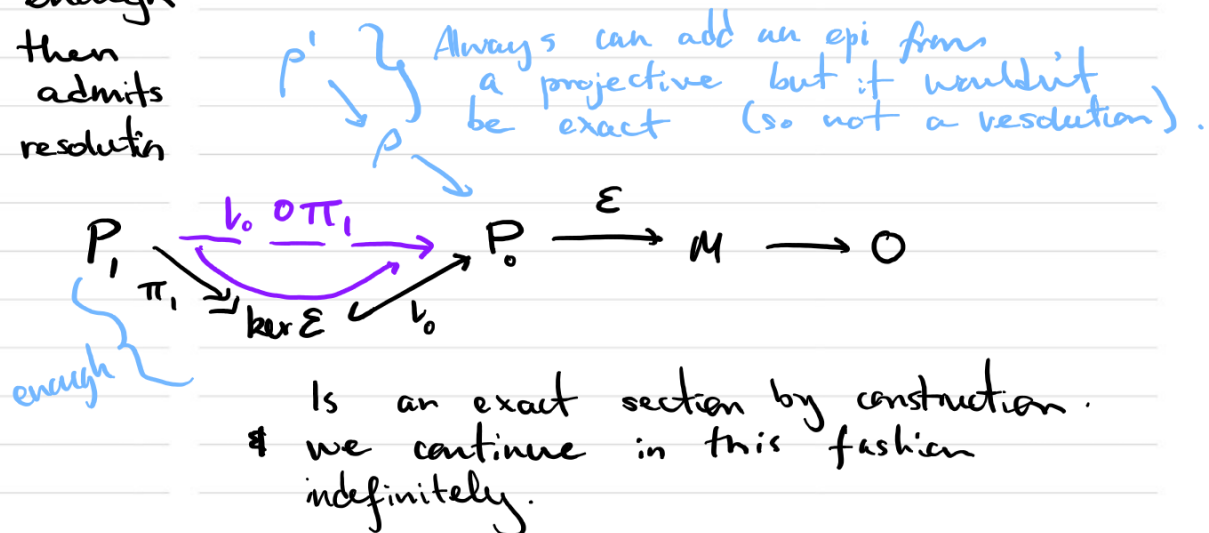 enough
then
admits
resolutin
P' } Always can add an epi from
a projective but it wouldn't
be exact (so not a resolution).
P
ι₀ ∘ π₁
ε
P₁ P₀ M 0
π₁ ker ε ι₀
enough
Is an exact section by construction.
& we continue in this fashion
indefinitely.